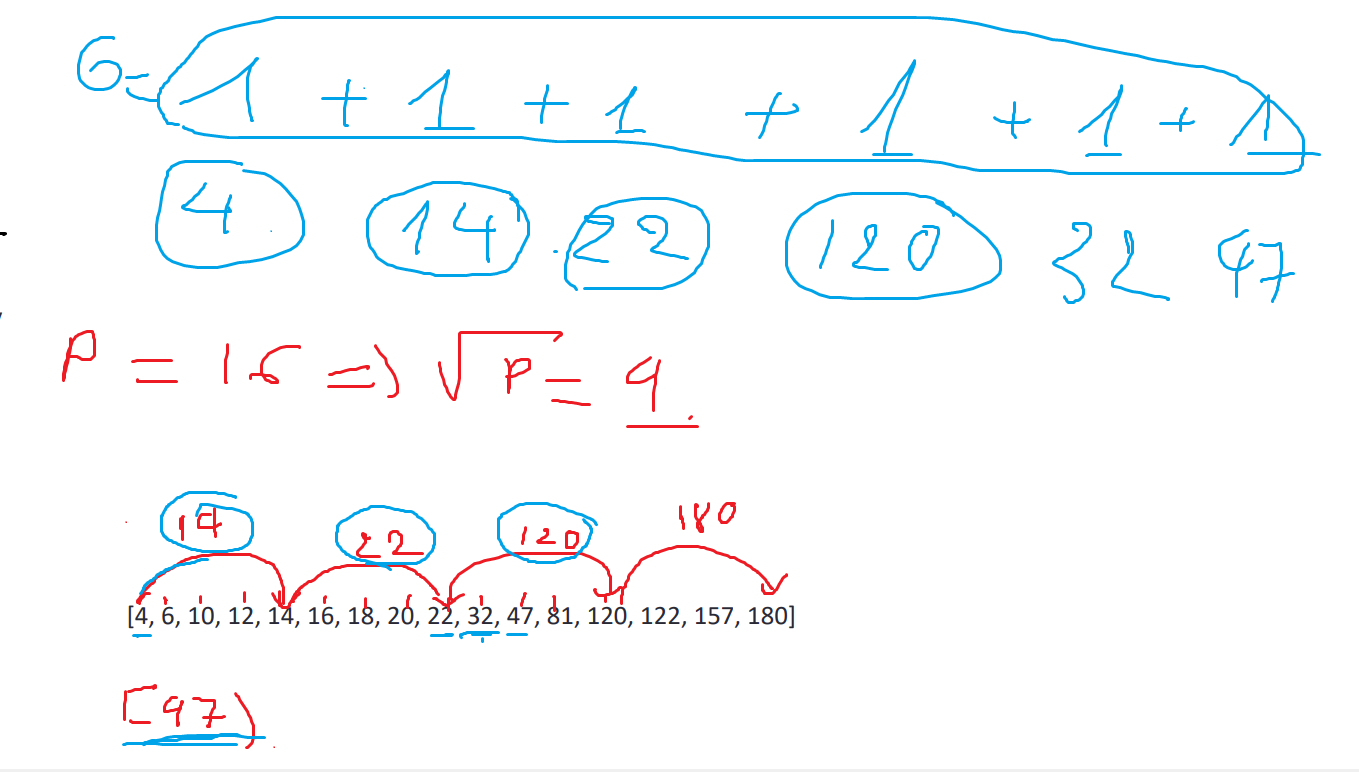 6 = 1 + 1 + 1 + 1 + 1 + 1
4 14 22 120 32 47
P = 16 => √P = 4
14 22 120 180
[4, 6, 10, 12, 14, 16, 18, 20, 22, 32, 47, 81, 120, 122, 157, 180]
[47)